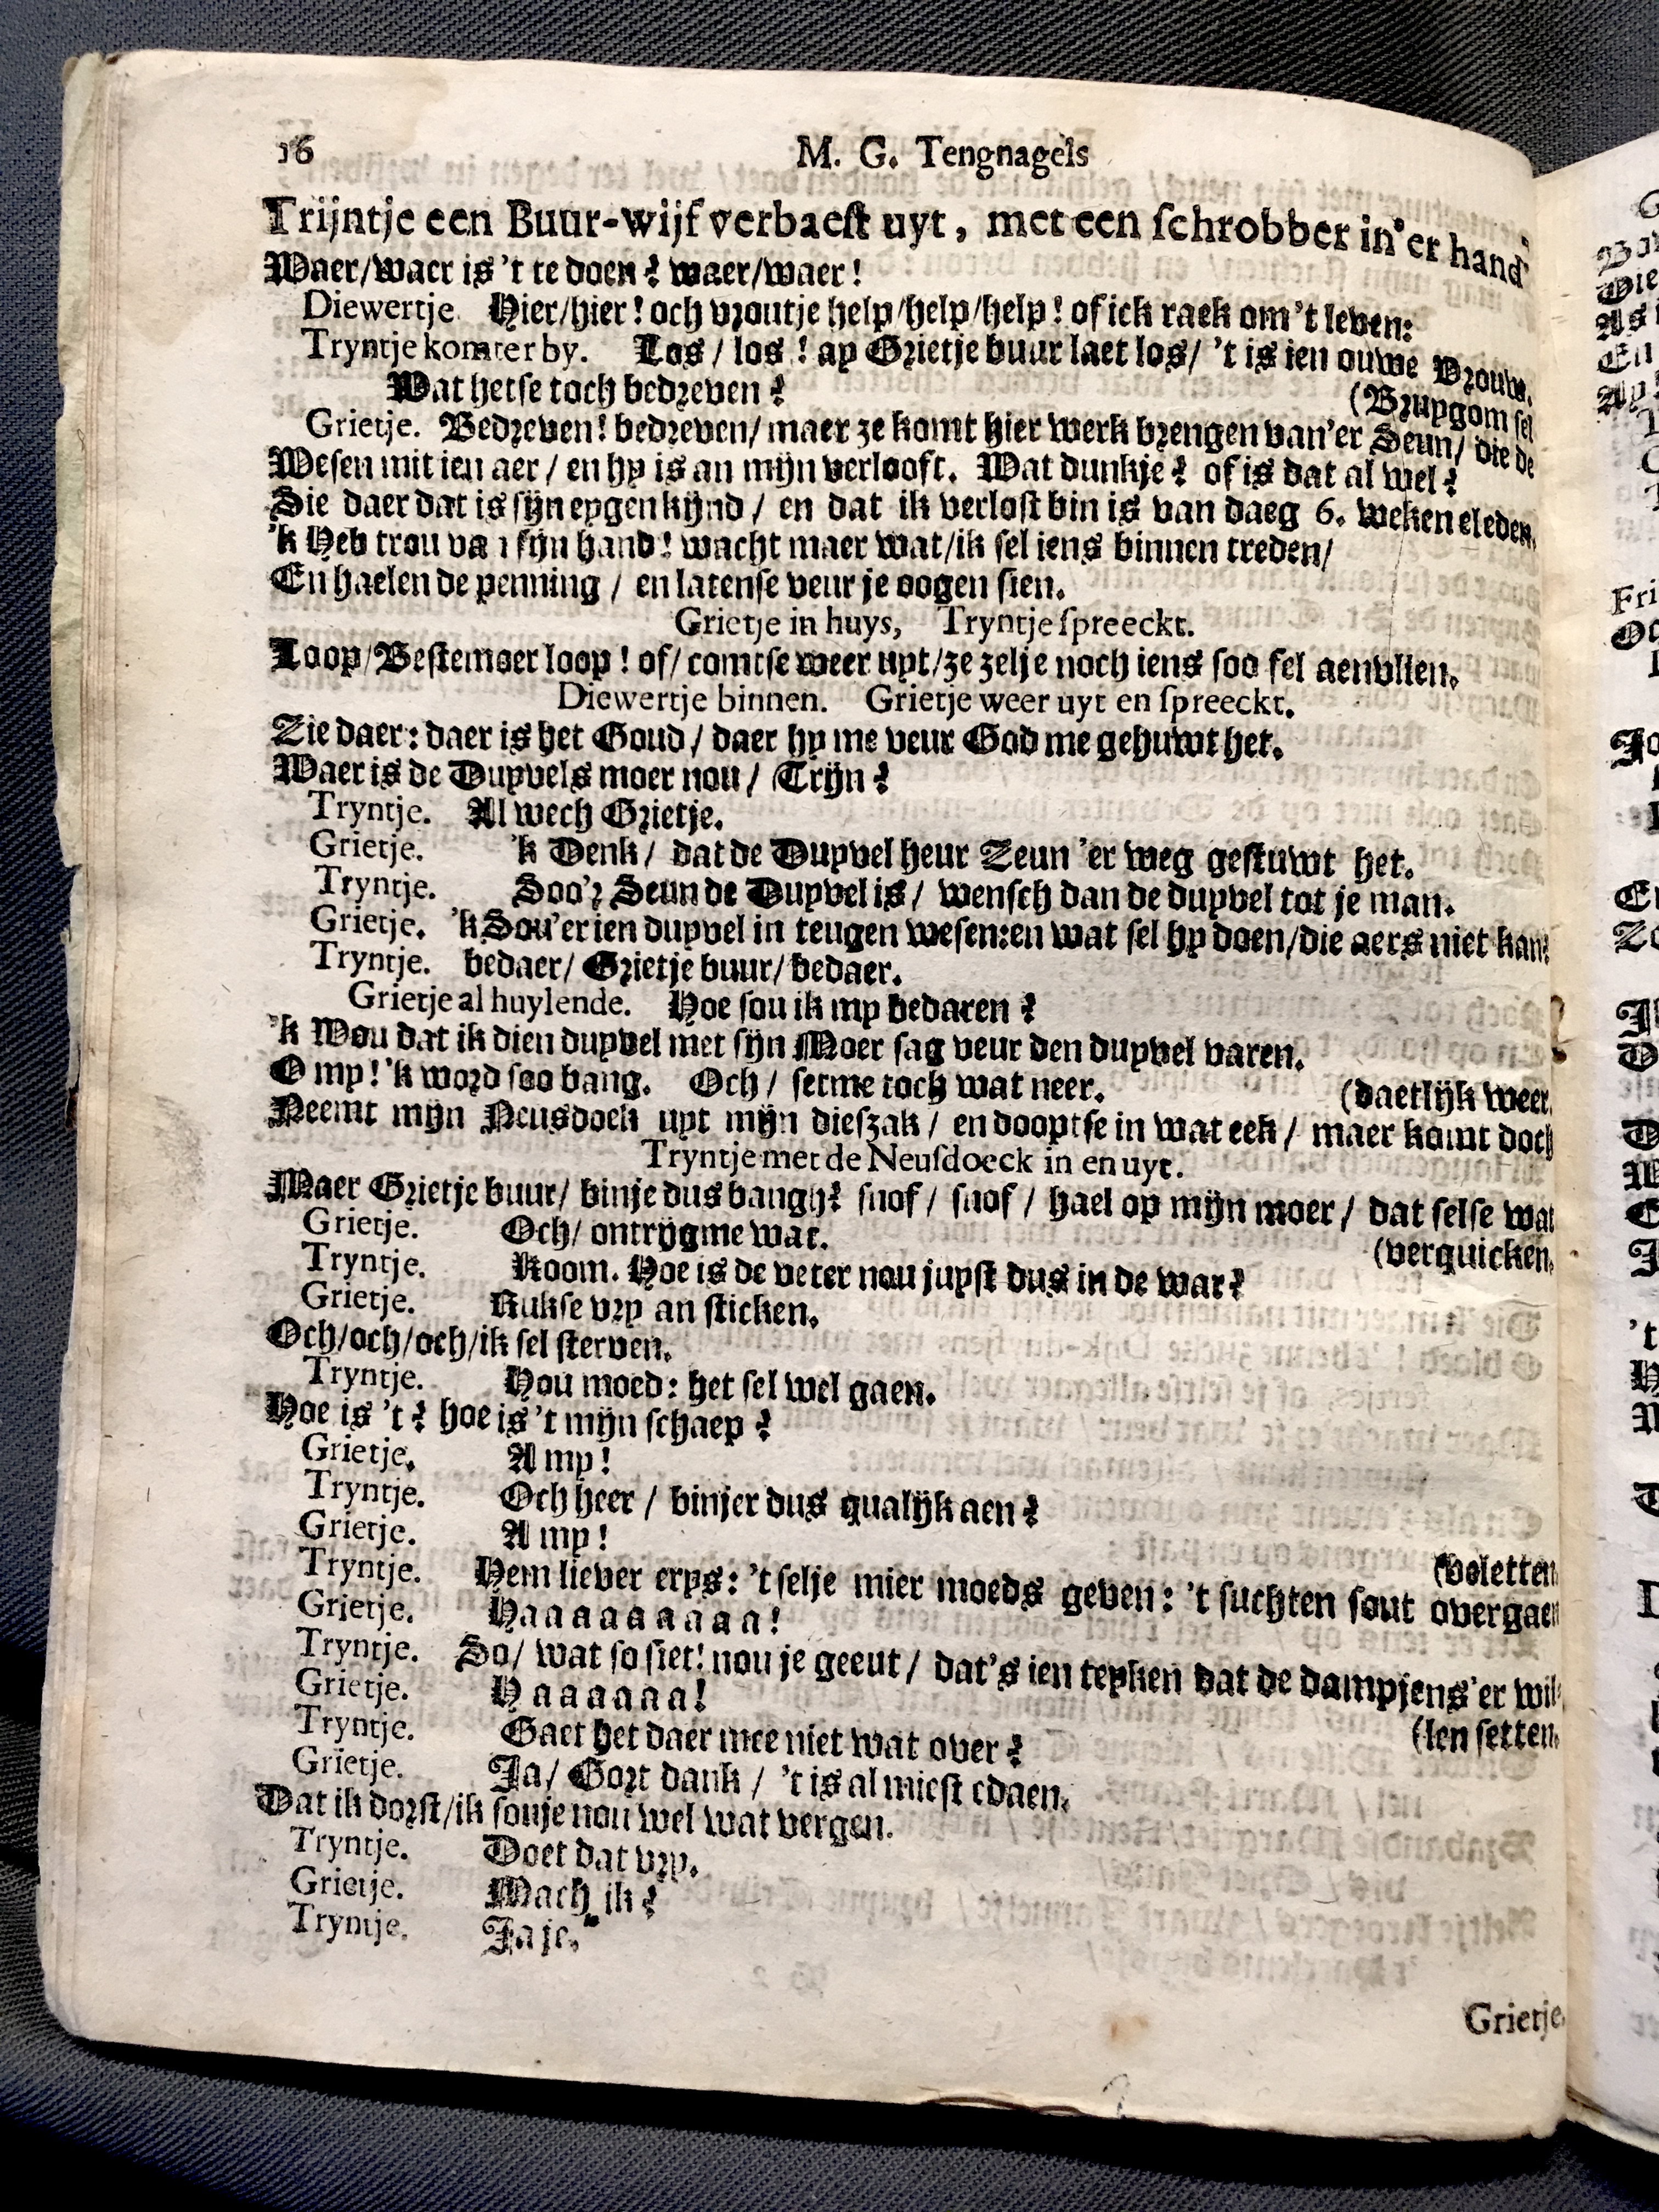 16 M. G. Tengnagels
Trijntje een Buur-wijf verbaeſt uyt, met een ſchrobber in'er hand
Waer/waer is 't te doen? waer/waer!
Diewertje. Hier/hier! och vroutje help/help/help! of ick raek om 't leven:
Tryntje komter by. Los / los! ay Grietje buur laet los/ 't is ien ouwe Vrouw.
Wat hetſe toch bedreven? (Bruygom ſel
Grietje. Bedreven! bedreven/ maer ze komt hier werk brengen van'er Seun/ die de
Weſen mit ien aer / en hy is an mijn verlooft. Wat dunkje? of is dat al wel?
Sie daer dat is ſijn eygen kijnd / en dat ik verloſt bin is van daeg 6. weken eleden.
'k Heb trou va ı ſijn hand! wacht maer wat/ik ſel iens binnen treden/
En haelen de penning / en latenſe veur je oogen ſien.
Grietje in huys, Tryntje ſpreeckt.
Loop/Beſtemoer loop! of/ comtſe weer uyt/ze zelje noch iens ſoo fel aenvlien.
Diewertje binnen. Grietje weer uyt en ſpreeckt.
Zie daer: daer is het Goud / daer hy me veur God me gehuwt het.
Waer is de Duyvels moer nou / Trijn?
Tryntje. Al wech Grietje.
Grietje. 'k Denk / dat de Duyvel heur Zeun 'er weg geſtuwt het.
Tryntje. Soo'r Seun de Duyvel is / wenſch dan de duyvel tot je man.
Grietje. 'k Sou'er ien duyvel in teugen weſen: en wat ſel hy doen/die aers niet kan?
Tryntje. bedaer/ Grietje buur/ bedaer.
Grietje al huylende. Hoe ſou ik my bedaren?
'k Wou dat ik dien duyvel met ſijn Moer ſag veur den duyvel varen.
O my! 'k word ſoo bang. Och / ſetme toch wat neer. (daetlijk weer.
Neemt mijn Neusdoek uyt mijn dieſzak / en dooptſe in wat eek / maer komt doch
Tryntje met de Neuſdoeck in en uyt.
Maer Grietje buur/ binje dus bangh? ſnof / ſnof / hael op mijn moer / dat ſelſe wat
Grietje. Och/ ontrijgme wat. (verquicken.
Tryntje. Koom. Hoe is de veter nou juyſt dus in de war?
Grietje. Rukſe vry an ſticken.
Och/och/och/ik ſel ſterven.
Tryntje. Hou moed: het ſel wel gaen.
Hoe is 't? hoe is 't mijn ſchaep?
Grietje. A my!
Tryntje. Och heer / binjer dus qualijk aen?
Grietje. A my!
Tryntje. Hem liever erys: 't ſelje mier moeds geven: 't ſuchten ſout overgaen (beletten
Grietje. Haaaaaaaaa!
Tryntje. So/ wat ſo ſiet! nou je geeut / dat's ien teyken dat de dampjens'er wil-
Grietje. Haaaaaa!
Tryntje. Gaet het daer mee niet wat over? (len ſetten.
Grietje. Ja/ Gort dank / 't is al mieſt edaen.
Dat ik dorſt/ik ſouje nou wel wat vergen.
Tryntje. Doet dat vry.
Grietje. Mach ik?
Tryntje. Ja je.
Grietje.